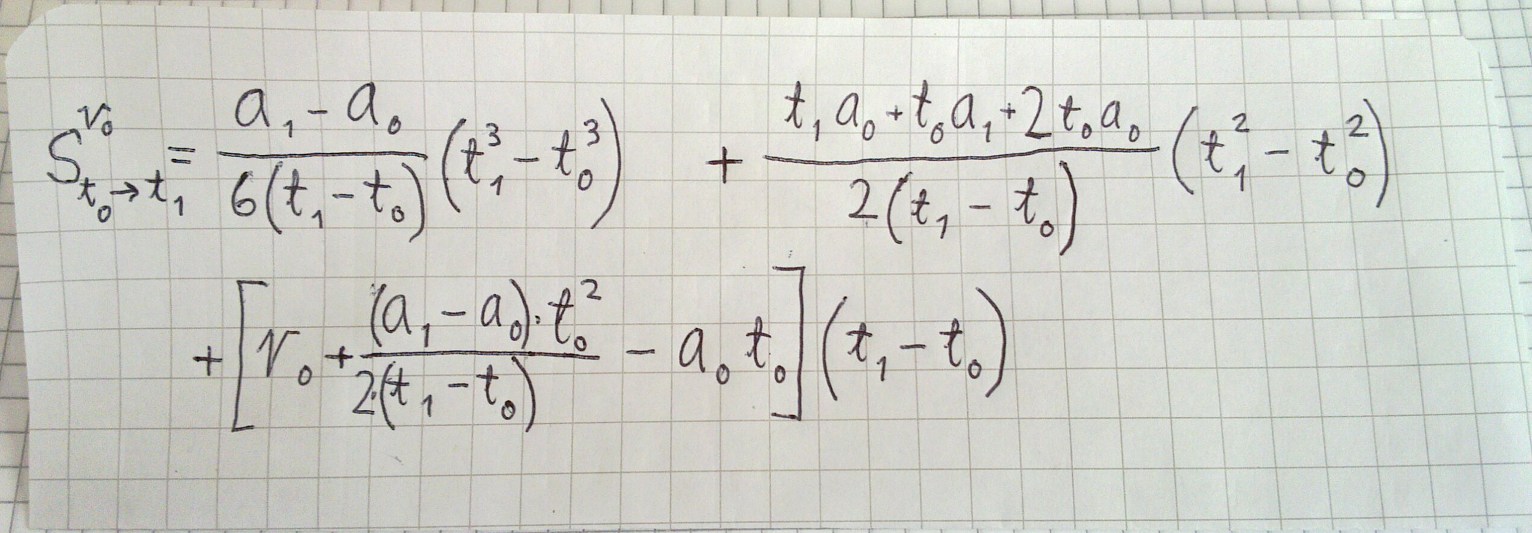 S_{t₀→t₁}^{v₀} = \frac{a₁ - a₀}{6(t₁ - t₀)} (t₁³ - t₀³) + \frac{t₁a₀ + t₀a₁ + 2t₀a₀}{2(t₁ - t₀)} (t₁² - t₀²)
+ [v₀ + \frac{(a₁ - a₀)·t₀²}{2(t₁ - t₀)} - a₀t₀] (t₁ - t₀)